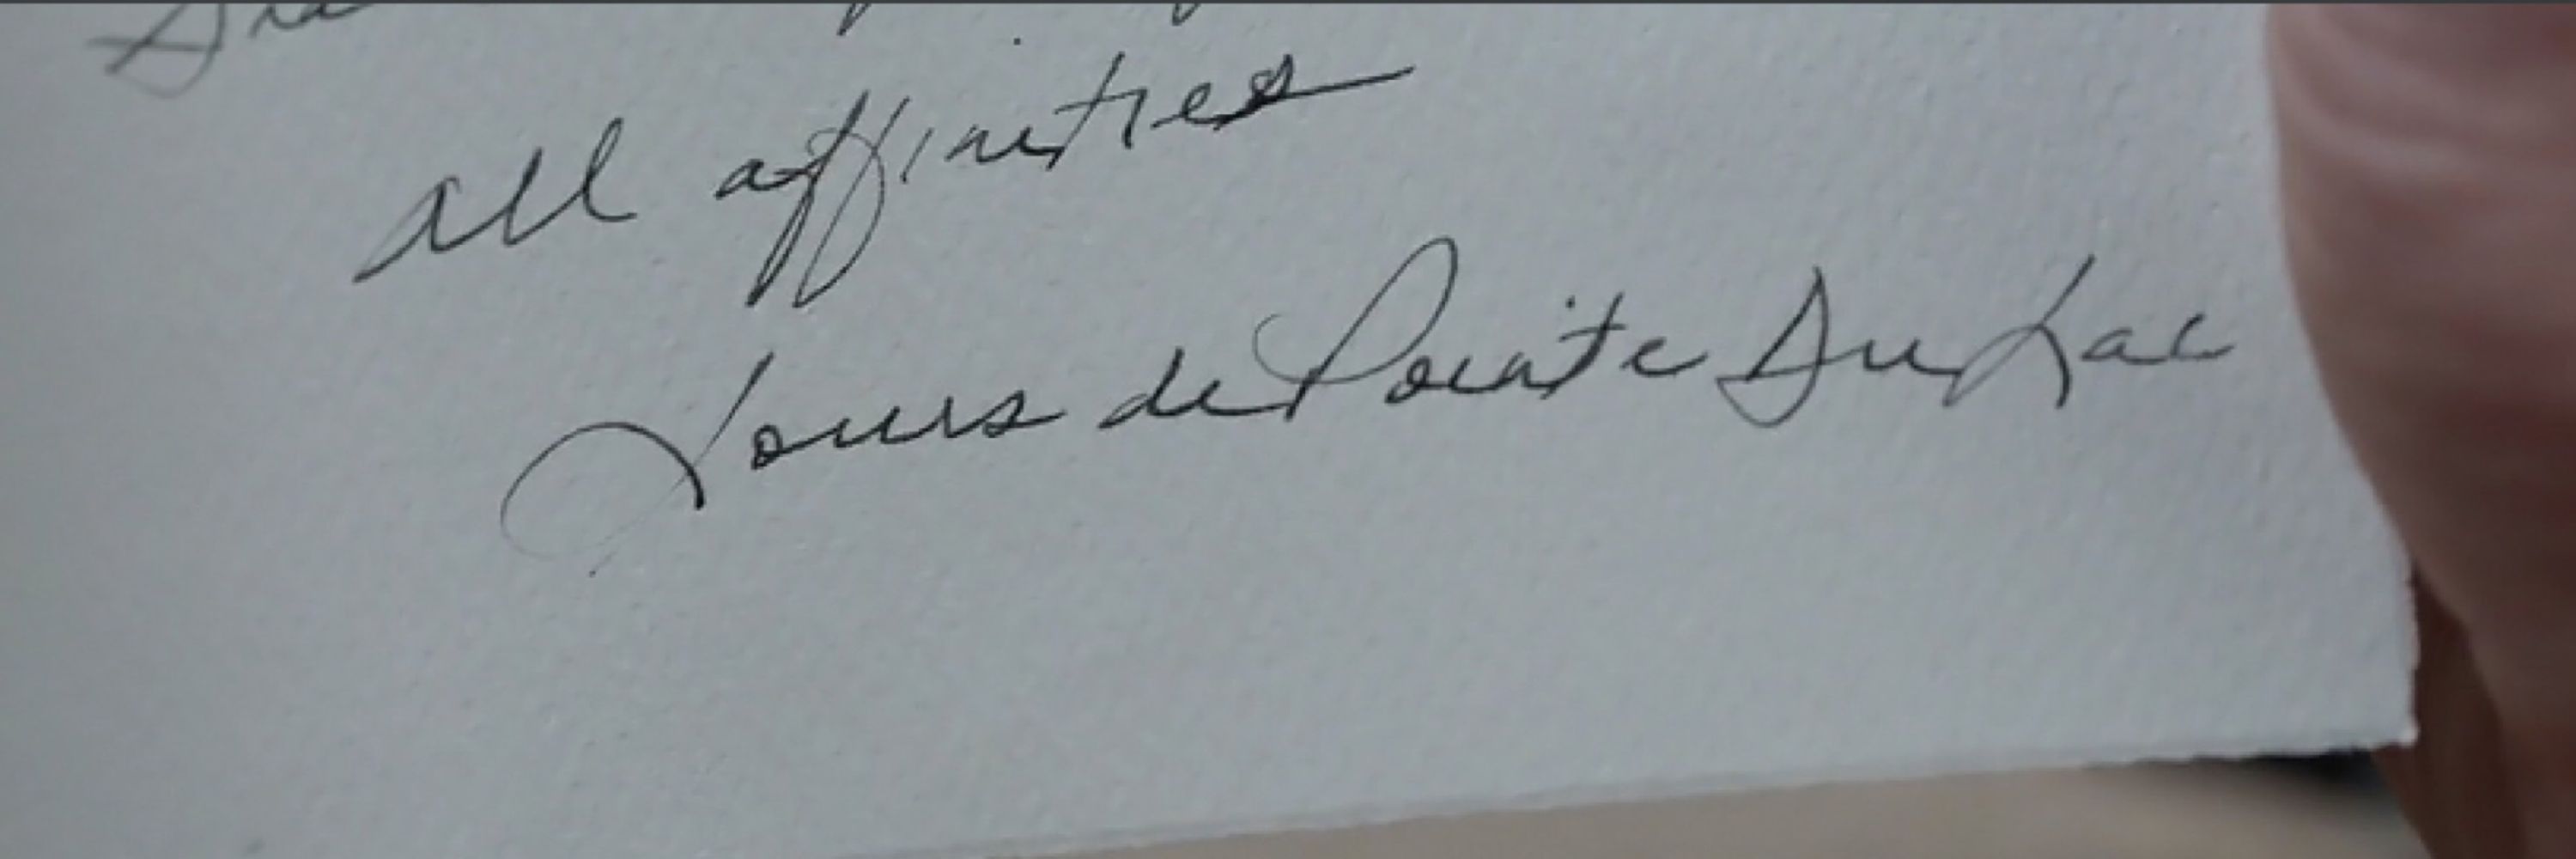 all affinities
Louis de Pointe Du Lac